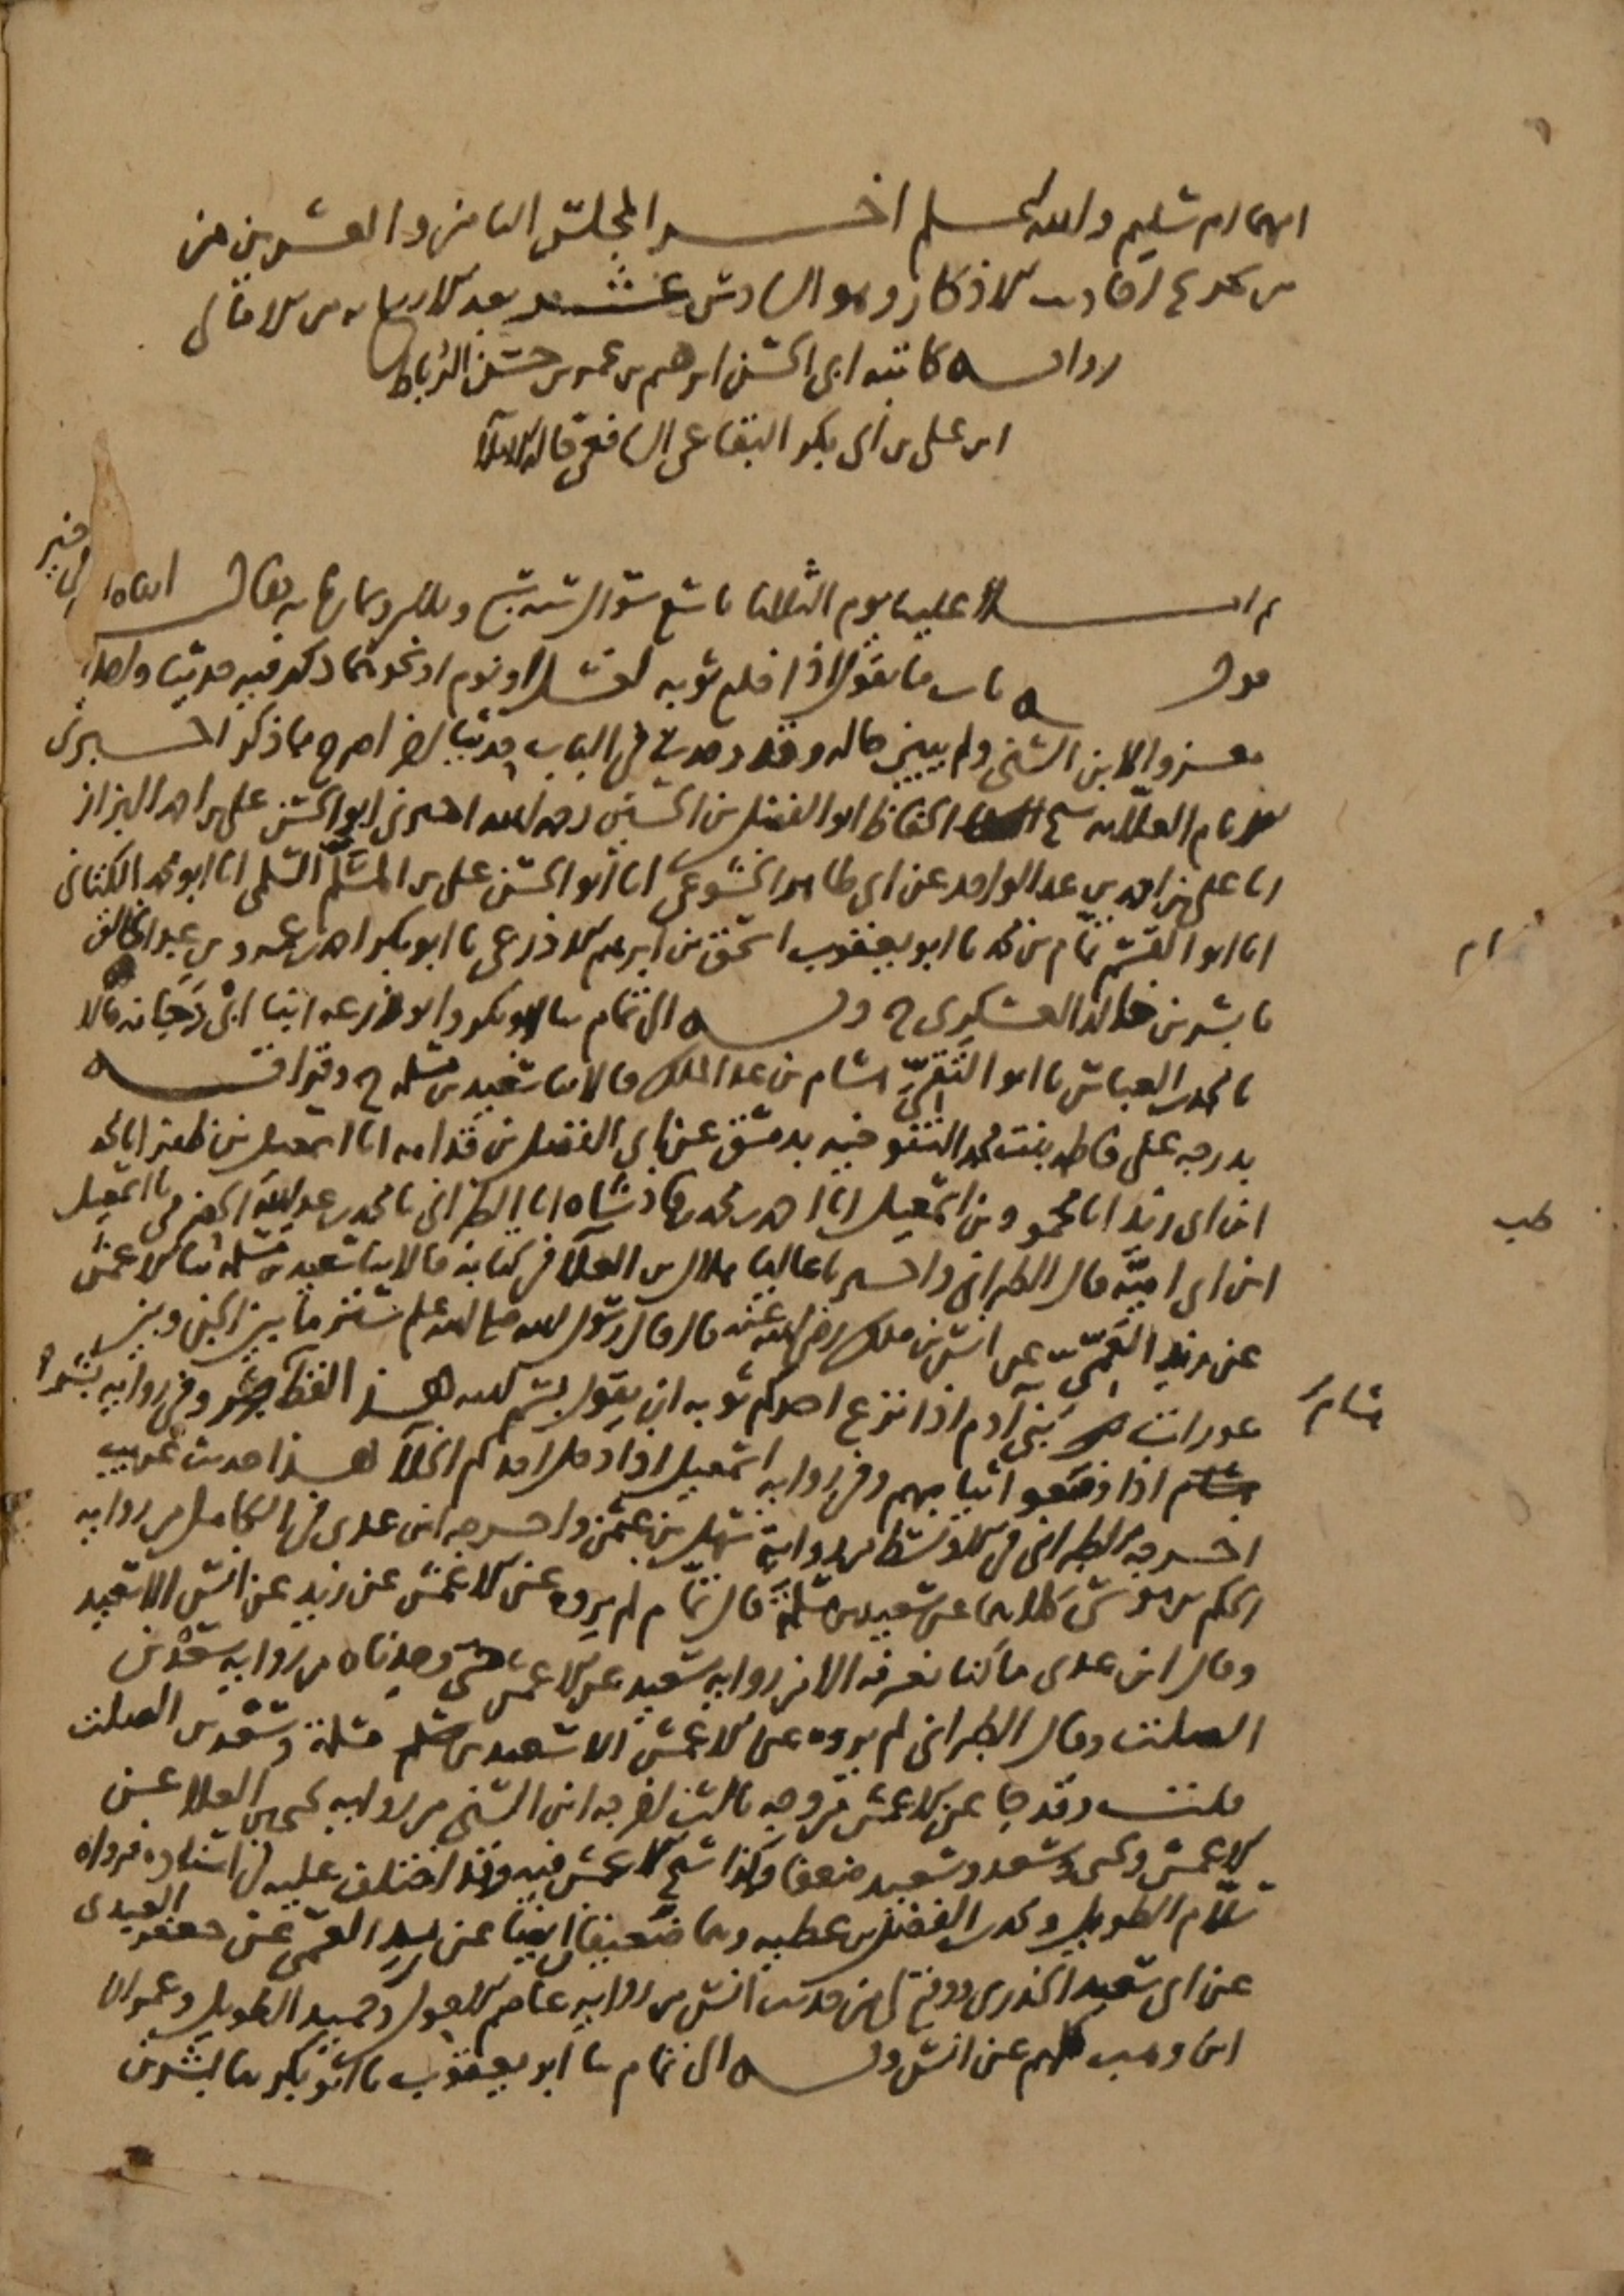 انهما ام سليم والله اعلم اخر المجلس الثامن والعشرين من
من تخريج احاديث الاذكار وهو السادس عشر بعد الاربعمايه من الامالي
رواية كاتبه ابي الحسن ابرهيم بن عمر بن حسن الرباط
ابن علي بن ابي بكر البقاعي الشافعي قال الاملا
ثم املا علينا يوم الثلاثا تاسع شوال سنة وثمان مايه فقال
قوله باب ما يقول اذا خلع ثوبه لغسل او نوم او نحوهما ذكر فيه حديثا واحدا
معزوا لابن السني ولم يبين حاله وقد وجدت في الباب حديثا اخر اصح مما ذكر اخبرني
الامام العلامه شيخ الحفاظ ابو الفضل بن الحسين رحمه الله اخبرني ابو الحسن علي بن احمد البزاز
انا علي بن احمد بن عبد الواحد عن ابي طاهر الخشوعي انا ابو الحسن علي بن المسلم السلمي انا ابو محمد الكتاني
انا ابو القسم تمام بن محمد نا ابو يعقوب اسحق بن ابرهيم الاذرعي نا ابو بكر احمد بن عمرو بن عبد الخالق
نا بشر بن خالد العسكري ح وبه الى تمام ثنا ابو بكر وابو زرعه ابنا ابي دجانه قالا
نا محمد بن العباس نا ابو التقي هشام بن عبد الملك قالا ثنا سعيد بن مسلمه ح وقرات
بدرجه على فاطمه بنت محمد التنوخيه بدمشق عن ابي الفضل بن قدامه انا اسمعيل بن ظفر انا محمد
ابن ابي زيد انا محمود بن اسمعيل انا احمد بن محمد بن فاذشاه انا الطبراني نا محمد بن عبد الله الحضرمي نا اسمعيل
ابن ابي اميه قال الطبراني واخبرنا عاليا هلال بن العلا في كتابه قالا ثنا سعيد بن مسلمه ثنا الاعمش
عن زيد العمي عن انس بن ملك رضي الله عنه قال قال رسول الله صلى الله عليه وسلم ستر ما بين الجن وبين
عورات بني آدم اذا نزع احدكم ثوبه ان يقول بسم الله هذا لفظ بشر وفي رواية
هشام اذا وضعوا ثيابهم وفي رواية اسمعيل اذا دخل احدكم الخلا هذا حديث غريب
اخرجه الطبراني في الاوسط من رواية سهل بن عثمن واخرجه ابن عدي في الكامل من رواية
الحكم بن موسى كلاهما عن سعيد بن مسلمة قال تمام لم يروه عن الاعمش عن زيد عن انس الا سعيد
وقال ابن عدي ما كنا نعرفه الا من رواية سعيد عن الاعمش حتى وجدناه من رواية سعد بن
الصلت وقال الطبراني لم يروه عن الاعمش الا سعيد بن مسلمة وسعد بن الصلت
قلت وقد جا عن الاعمش من وجه ثالث اخرجه ابن السني من رواية يحيى بن العلا عن
الاعمش ويحيى وسعد وسعيد ضعفا وكذا شيخ الاعمش فيه وقد اختلف عليه في اسناده فرواه
سلام الطويل ومحمد بن الفضل بن عطيه وهما ضعيفان ايضا عن زيد العمي عن جعفر العبدي
عن ابي سعيد الخدري ووقع لي من حديث انس من رواية عاصم الاحول وحميد الطويل وعمران
ابن وهب كلهم عن انس وبه الى تمام ثنا ابو يعقوب نا ابو بكر ثنا بشر بن